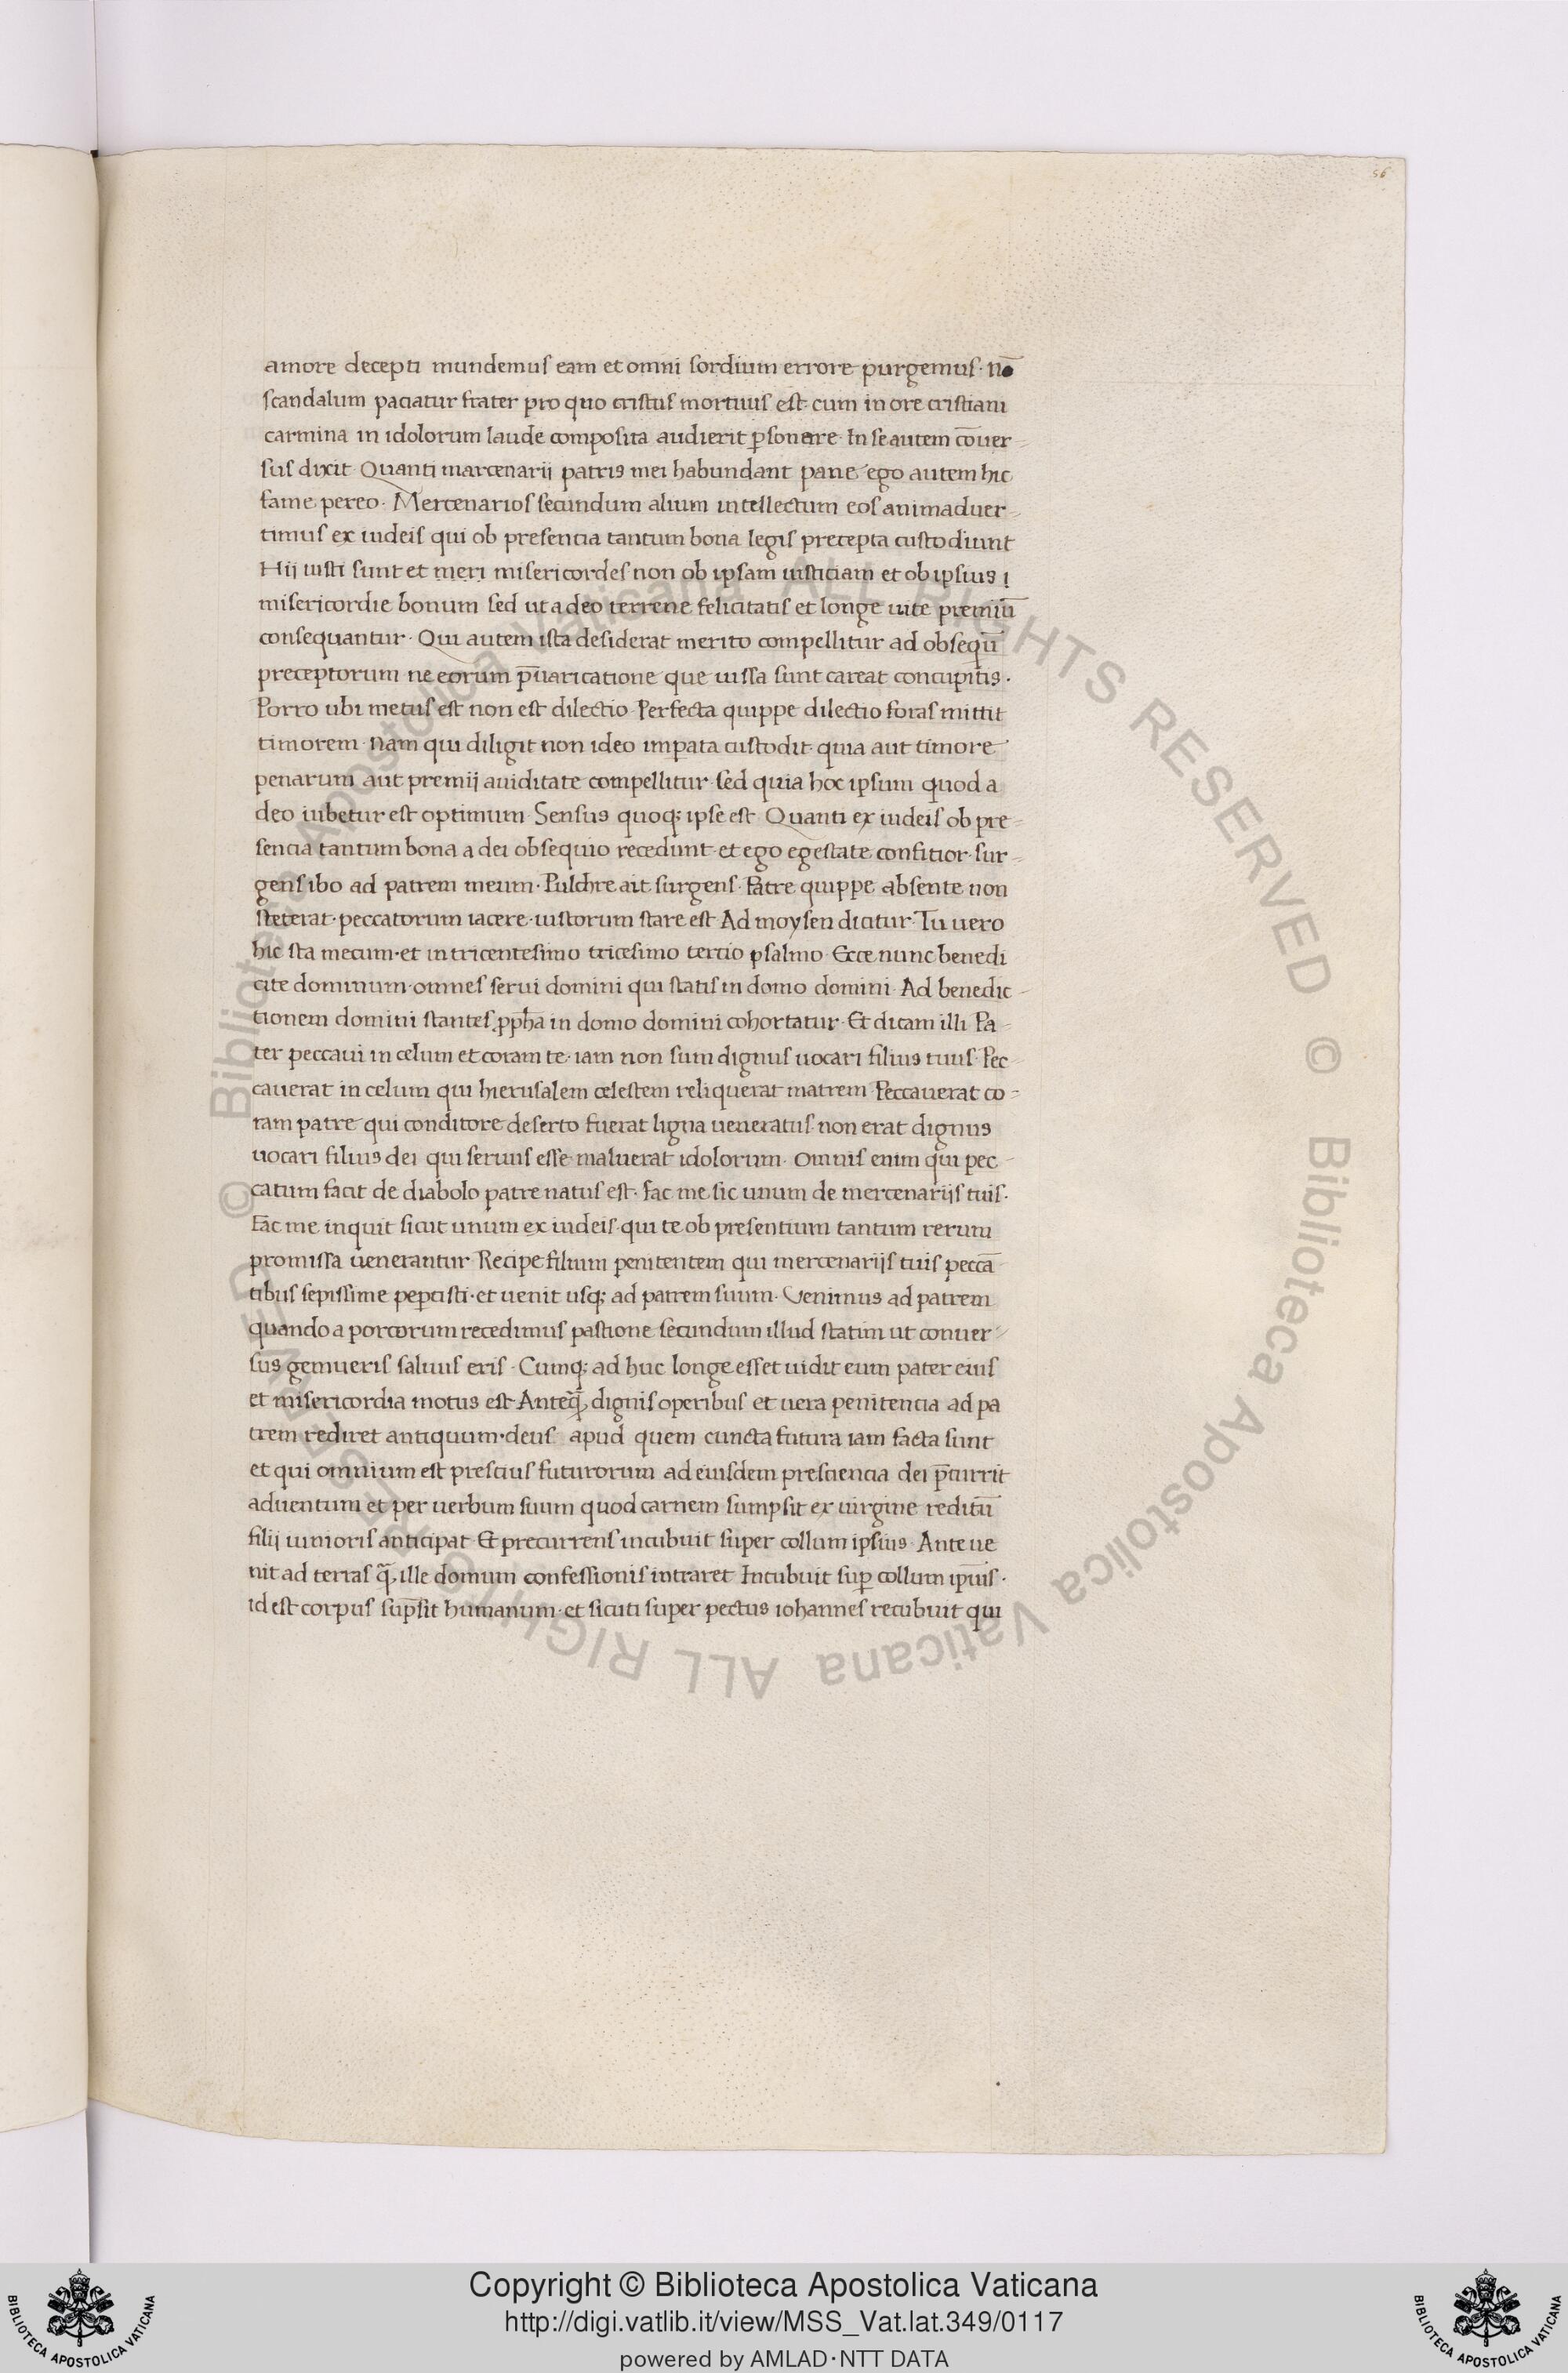 56
amore decepti mundemus eam et omni sordium errore purgemus· nō
scandalum paciatur frater pro quo cristus mortuus est· cum in ore cristiani
carmina in idolorum laude composita audierit p̱sonare· In se autem cōuer-
sus dixit· Quanti marcenarii patris mei habundant pane· ego autem hic
fame pereo· Mercenarios secundum alium intellectum eos animaduer-
timus ex iudeis qui ob presencia tantum bona legis precepta custodiunt
Hij iusti sunt et meri misericordes non ob ipsam iusticiam et ob ipsius i
misericordie bonum sed ut a deo terrene felicitatis et longe uite premiū
consequantur· Qui autem ista desiderat merito compellitur ad obsequū
preceptorum ne eorum p̄uaricatione que iussa sunt careat concupitis·
Porro ubi metus est non est dilectio· Perfecta quippe dilectio foras mittit
timorem· Nam qui diligit non ideo imperata custodit· quia aut timore
penarum aut premij auiditate compellitur· sed quia hoc ipsum quod a
deo iubetur est optimum· Sensus quoq; ipse est· Quanti ex iudeis ob pre-
sencia tantum bona a dei obsequio recedunt· et ego egestate conficior· sur-
gens ibo ad patrem meum· Pulchre ait surgens· Patre quippe absente non
steterat· peccatorum iacere· iustorum stare est· Ad moysen dicitur· Tu uero
hic sta mecum· et in tricentesimo tricesimo tercio psalmo· Ecce nunc benedi
cite dominum· omnes serui domini qui statis in domo domini· Ad benedic-
tionem domini stantes ꝓph̄a in domo domini cohortatur· Et dicam illi Pa-
ter peccaui in celum et coram te· iam non sum dignus uocari filius tuus· Pec-
cauerat in celum qui hierusalem celestem reliquerat matrem· Peccauerat co-
ram patre qui conditore deserto fuerat ligna ueneratus· non erat dignus
uocari filius dei qui seruus esse maluerat idolorum· Omnis enim qui pec-
catum facit de diabolo patre natus est· fac me sic unum de mercenarijs tuis·
Fac me inquit sicut unum ex iudeis· qui te ob presentium tantum rerum
promissa uenerantur· Recipe filium penitentem qui mercenarijs tuis peccā
tibus sepissime pepcisti· et uenit usq; ad patrem suum· Venimus ad patrem
quando a porcorum recedimus pastione secundum illud statim ut conuer-
sus gemueris saluus eris· Cumq; ad huc longe esset uidit eum pater eius
et misericordia motus est· Anteq̄ dignis operibus et uera penitencia ad pa
trem rediret antiquum· deus apud quem cuncta futura iam facta sunt
et qui omnium est prescius futurorum ad eiusdem presciencia dei p̄currit
aduentum et per uerbum suum quod carnem sumpsit ex uirgine reditū
filij iunioris anticipat· Et precurrens incubuit super collum ipsius· Ante ue
nit ad terras q̄ ille domum confessionis intraret· Incubuit sup̱ collum ipīus·
id est corpus sūpsit humanum· et sicuti super pectus iohannes recubuit qui
© Biblioteca Apostolica Vaticana ALL RIGHTS RESERVED © Biblioteca Apostolica Vaticana ALL RIGHTS RESERVED
Copyright © Biblioteca Apostolica Vaticana
http://digi.vatlib.it/view/MSS_Vat.lat.349/0117
powered by AMLAD·NTT DATA
BIBLIOTECA APOSTOLICA VATICANA
BIBLIOTECA APOSTOLICA VATICANA